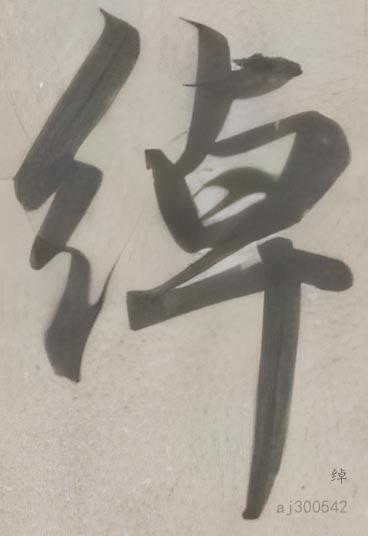 绰
绰
aj300542